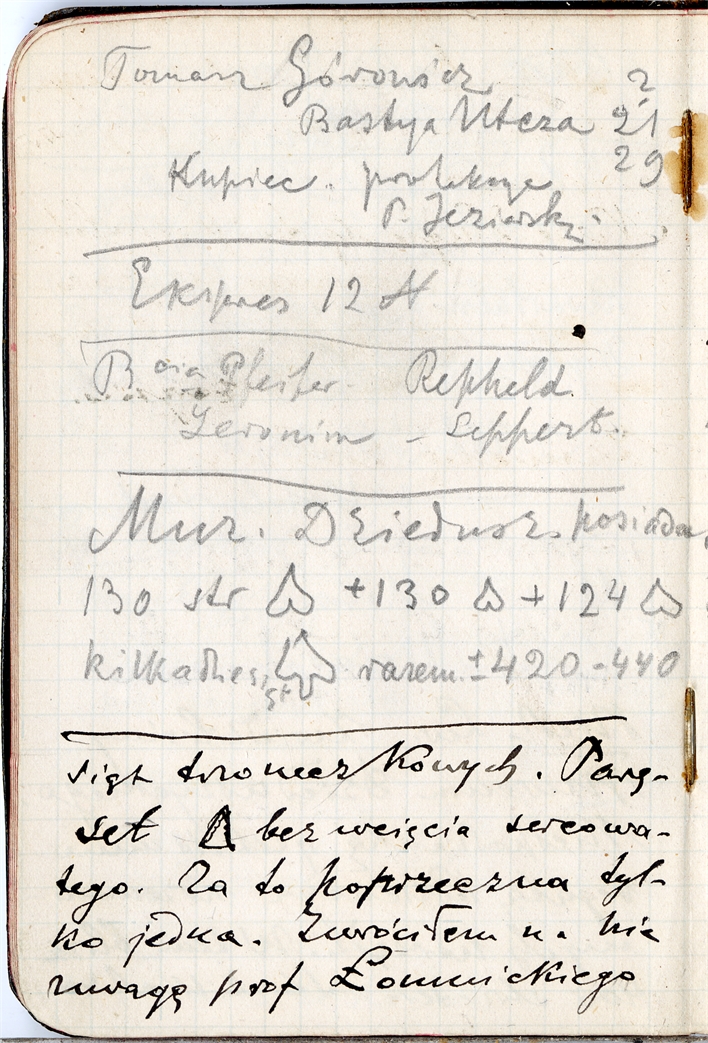 Tomasz Górowicz 2
Bastya Utcza 21
29
Kupiec.
P. Jeziorsky
Ekspres 12 H
B cia Pfeifer Repheld
Jeronim - Seppert.
Muz. Dziedusz. posiada
130 str + 130 + 124
kilkadzies. razem ± 420-440
siąt troneczkowych. Parę-
set bez wcięcia sercowa-
tego. Za to poprzeczna tyl-
ko jedna. Zwróciłem na nie
uwagę prof Łomnickiego